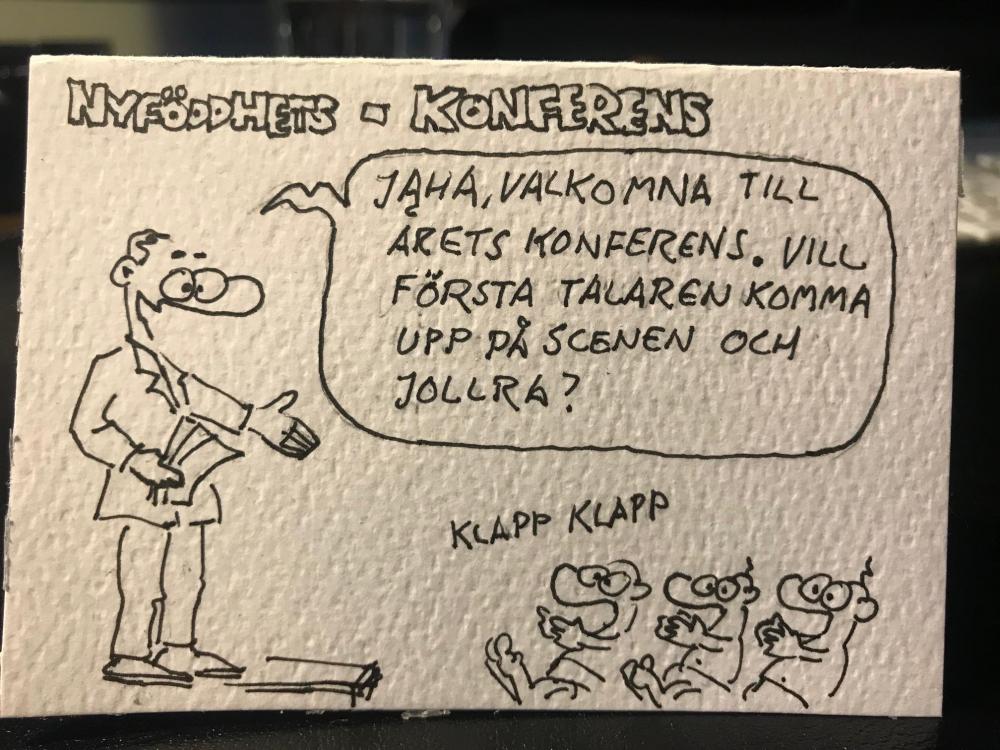 NYFÖDDHETS - KONFERENS
JAHA, VALKOMNA TILL
ÅRETS KONFERENS. VILL
FÖRSTA TALAREN KOMMA
UPP PÅ SCENEN OCH
JOLLRA?
KLAPP KLAPP